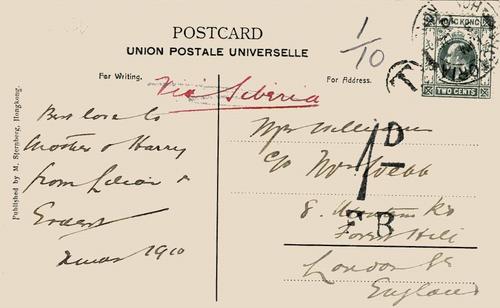 POSTCARD
UNION POSTALE UNIVERSELLE
1/10
For Writing.
For Address.
Via Siberia
HONG KONG
TWO CENTS
T
Published by M. Sternberg, Hongkong.
Best love to
Mother & Harry
from Lilian &
Ernest
Xmas 1910
Mrs Williams
c/o Mrs Webb
8.
Forest Hill
London SE
England
1D
F.B.